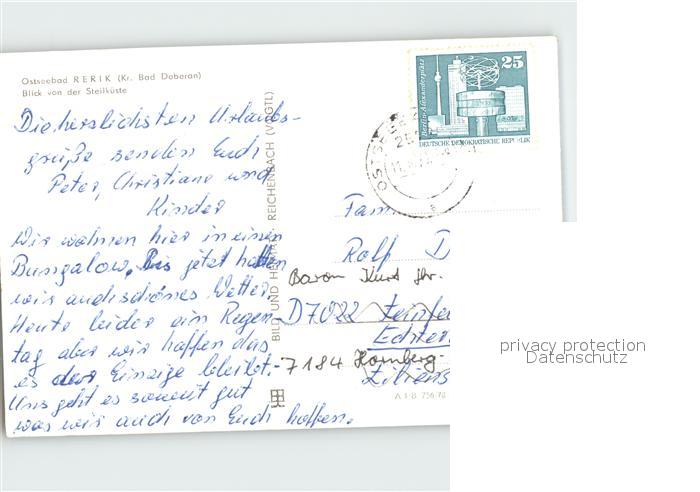 Ostseebad RERIK (Kr. Bad Doberan)
Blick von der Steilküste
Die herzlichsten Urlaubs-
grüße senden Euch
Peter, Christiane und
Kinder
Wir wohnen hier in einen
Bungalow. Bis jetzt hatten
wir auch schönes Wetter
Heute leider ein Regen-
tag aber wir hoffen das
es der Einzige bleibt.-
Uns geht es soweit gut
was wir auch von Euch hoffen.
BILD UND HEIMAT REICHENBACH (VOGTL)
Berlin-Alexanderplatz
25
DEUTSCHE DEMOKRATISCHE REPUBLIK
OSTSEEB
Fam
Rolf D
Baron Kurt Str.
D7022 Leinfe
Echter
7184 Homberg-
A 1/B 756/78
privacy protection
Datenschutz